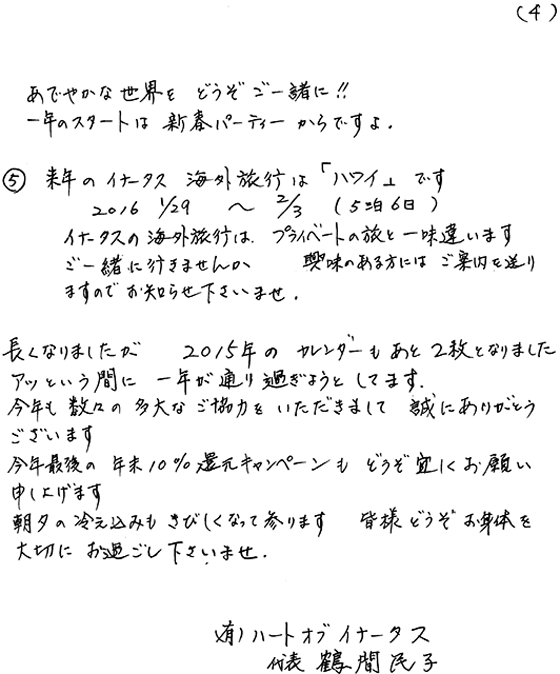 (4)
あでやかな世界を どうぞご一諸に!!
一年のスタートは 新春パーティーからですよ.
⑤ 来年のイナータス 海外旅行は「ハワイ」です
2016 1/29 〜 2/3 (5泊6日)
イナータスの海外旅行は、プライベートの旅と一味違います
ご一緒に行きませんか 興味のある方には ご案内を送り
ますのでお知らせ下さいませ.
長くなりましたが 2015年の カレンダーもあと2枚となりました
アッという間に 一年が通り過ぎようとしてます.
今年も数々の多大なご協力をいただきまして 誠にありがとう
ございます
今年最後の 年末10%還元キャンペーンも どうぞ宜しくお願い
申し上げます
朝夕の冷え込みも きびしくなって参ります 皆様どうぞお身体を
大切に お過ごし下さいませ.
(有)ハートオブイナータス
代表 鶴間民子